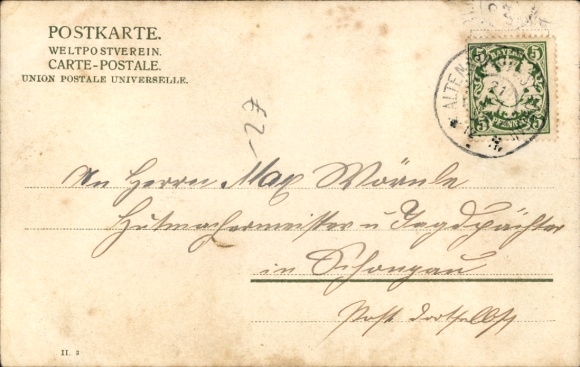 POSTKARTE.
WELTPOSTVEREIN.
CARTE-POSTALE.
UNION POSTALE UNIVERSELLE.
5 BAYERN 5
5 PFENNIG 5
ALTEN
21
£2-
An Herrn Max Wörnle
Hutmachermeister u Jagdpächter
in Schongau
Post dortselbst
II. 2